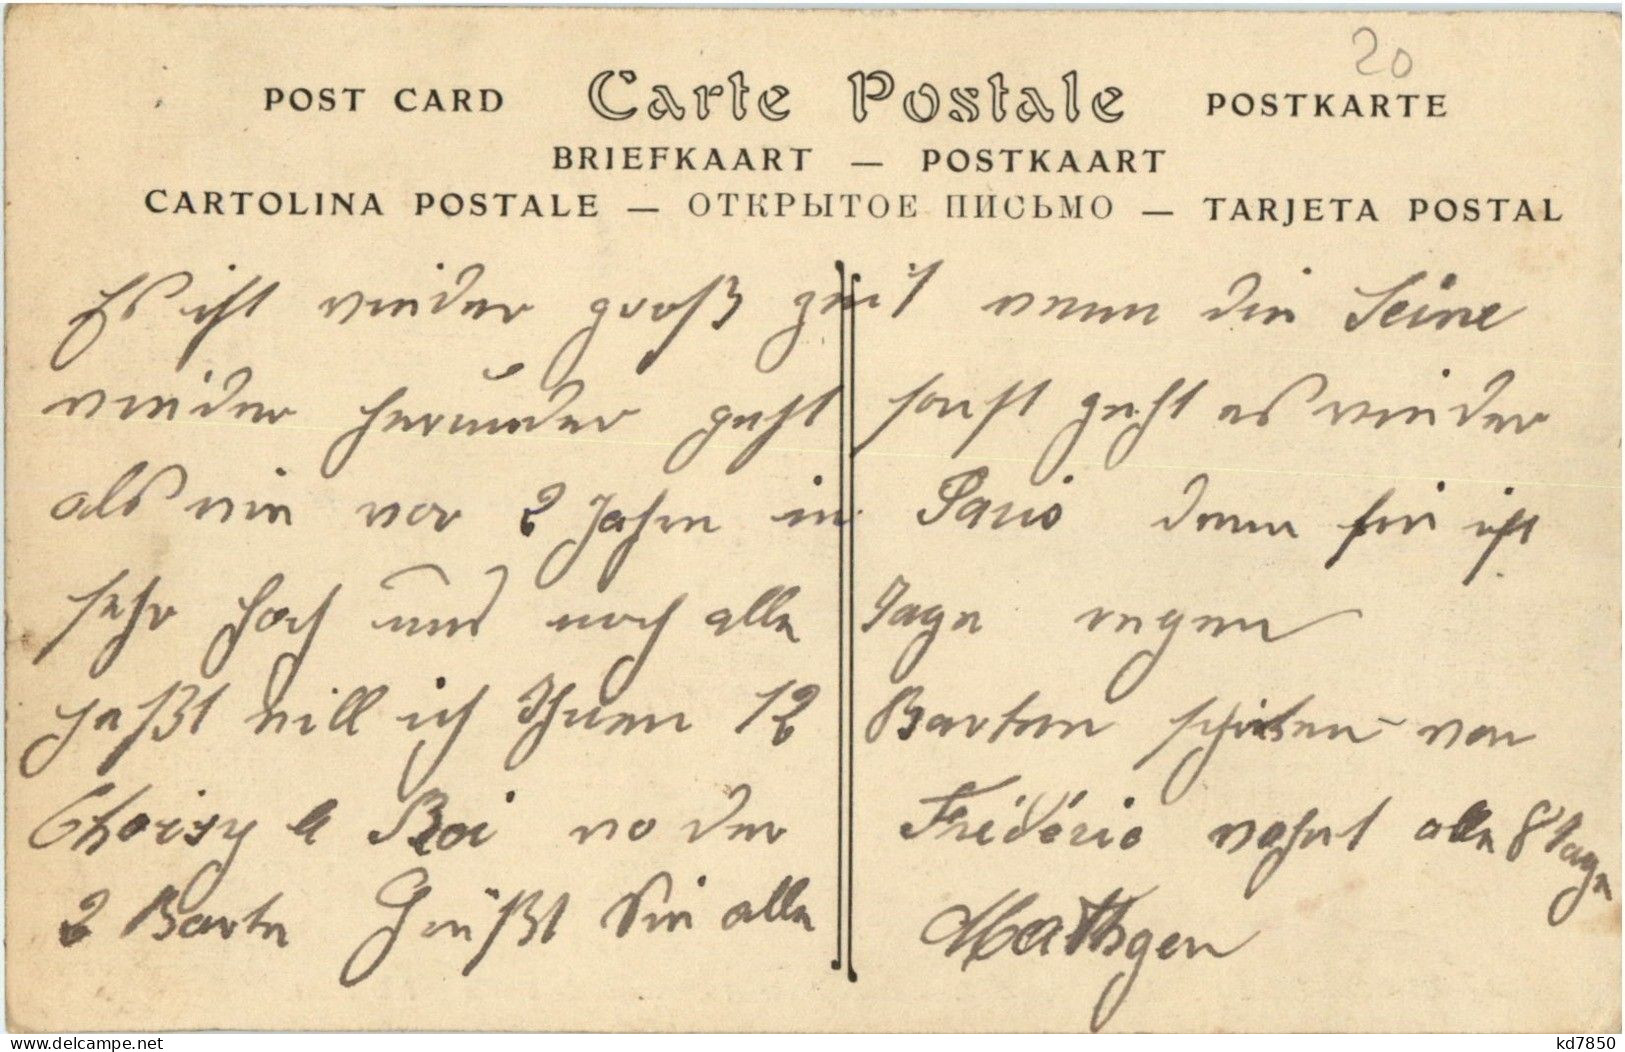 20
POST CARD Carte Postale POSTKARTE
BRIEFKAART — POSTKAART
CARTOLINA POSTALE — ОТКРЫТОЕ ПИСЬМО — TARJETA POSTAL
Es ist wieder groß zeit wenn die Seine
wieder herunder geht sonst geht es wieder
als wie vor 2 Jahre in Paris denn sie ist
sehr hoch und noch alle Tage regen
will ich Ihnen 12 Karten von
Choisy le Roi wo der Frédéric wohnt alle 8 Tage
2 Karte Grüßt Sie alle Mathgen
kd7850